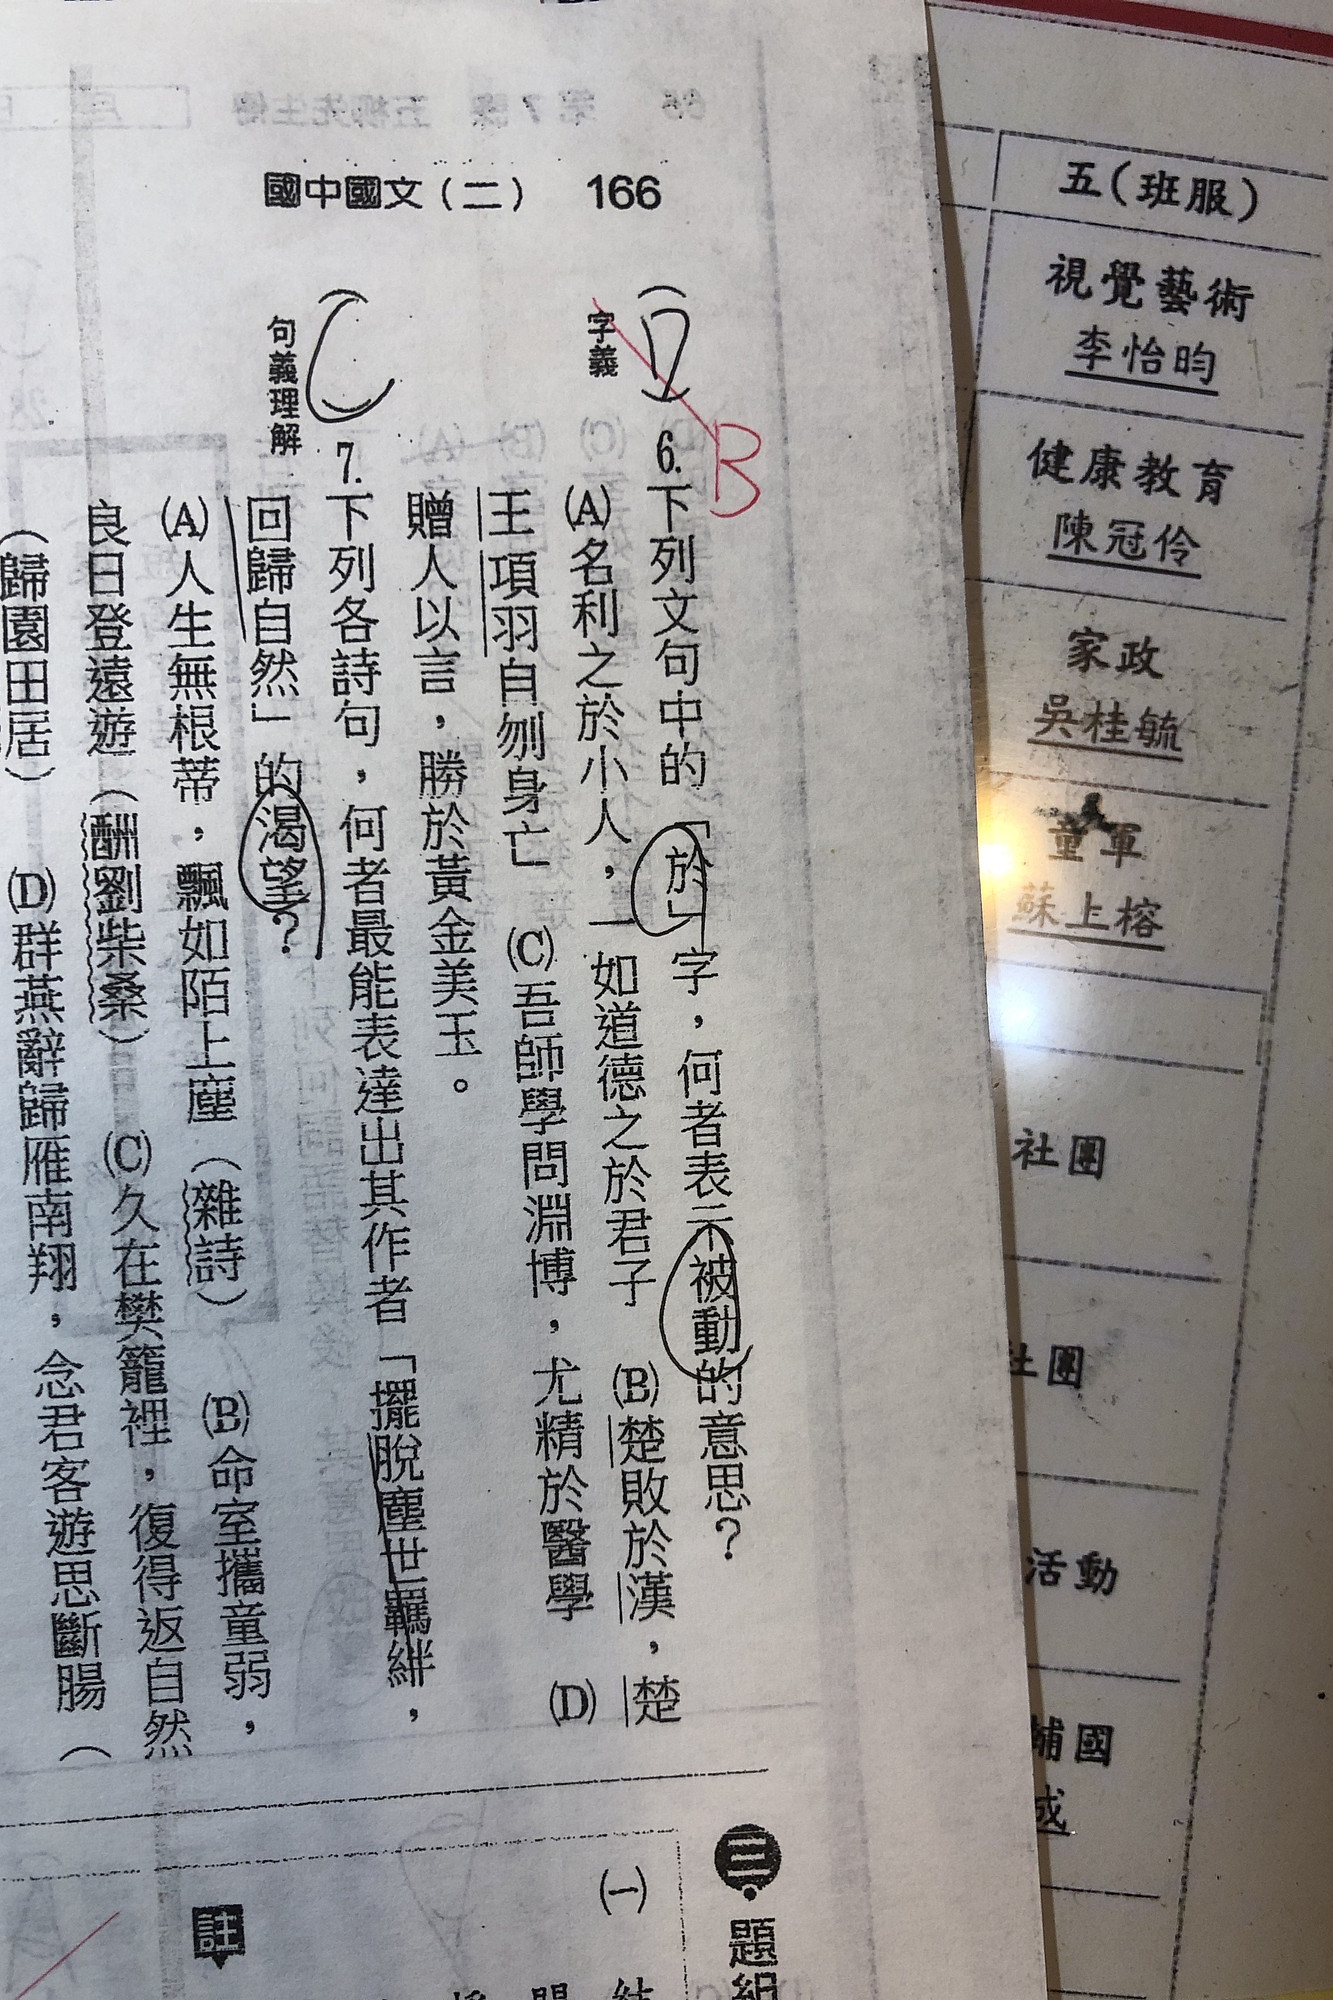 國中國文(二) 166
(D) B
字義
6.下列文句中的「於」字，何者表示被動的意思？
(A)名利之於小人，一如道德之於君子 (B)楚敗於漢，楚
王項羽自刎身亡 (C)吾師學問淵博，尤精於醫學 (D)
贈人以言，勝於黃金美玉。
(C)
句義理解
7.下列各詩句，何者最能表達出其作者「擺脫塵世羈絆，
回歸自然」的渴望？
(A)人生無根蒂，飄如陌上塵（雜詩） (B)命室攜童弱，
良日登遠遊（酬劉柴桑） (C)久在樊籠裡，復得返自然
（歸園田居） (D)群燕辭歸雁南翔，念君客遊思斷腸（
三、題組
(一)
註
五(班服)
視覺藝術
李怡昀
健康教育
陳冠伶
家政
吳桂毓
童軍
蘇上榕
社團
社團
活動
輔國
成